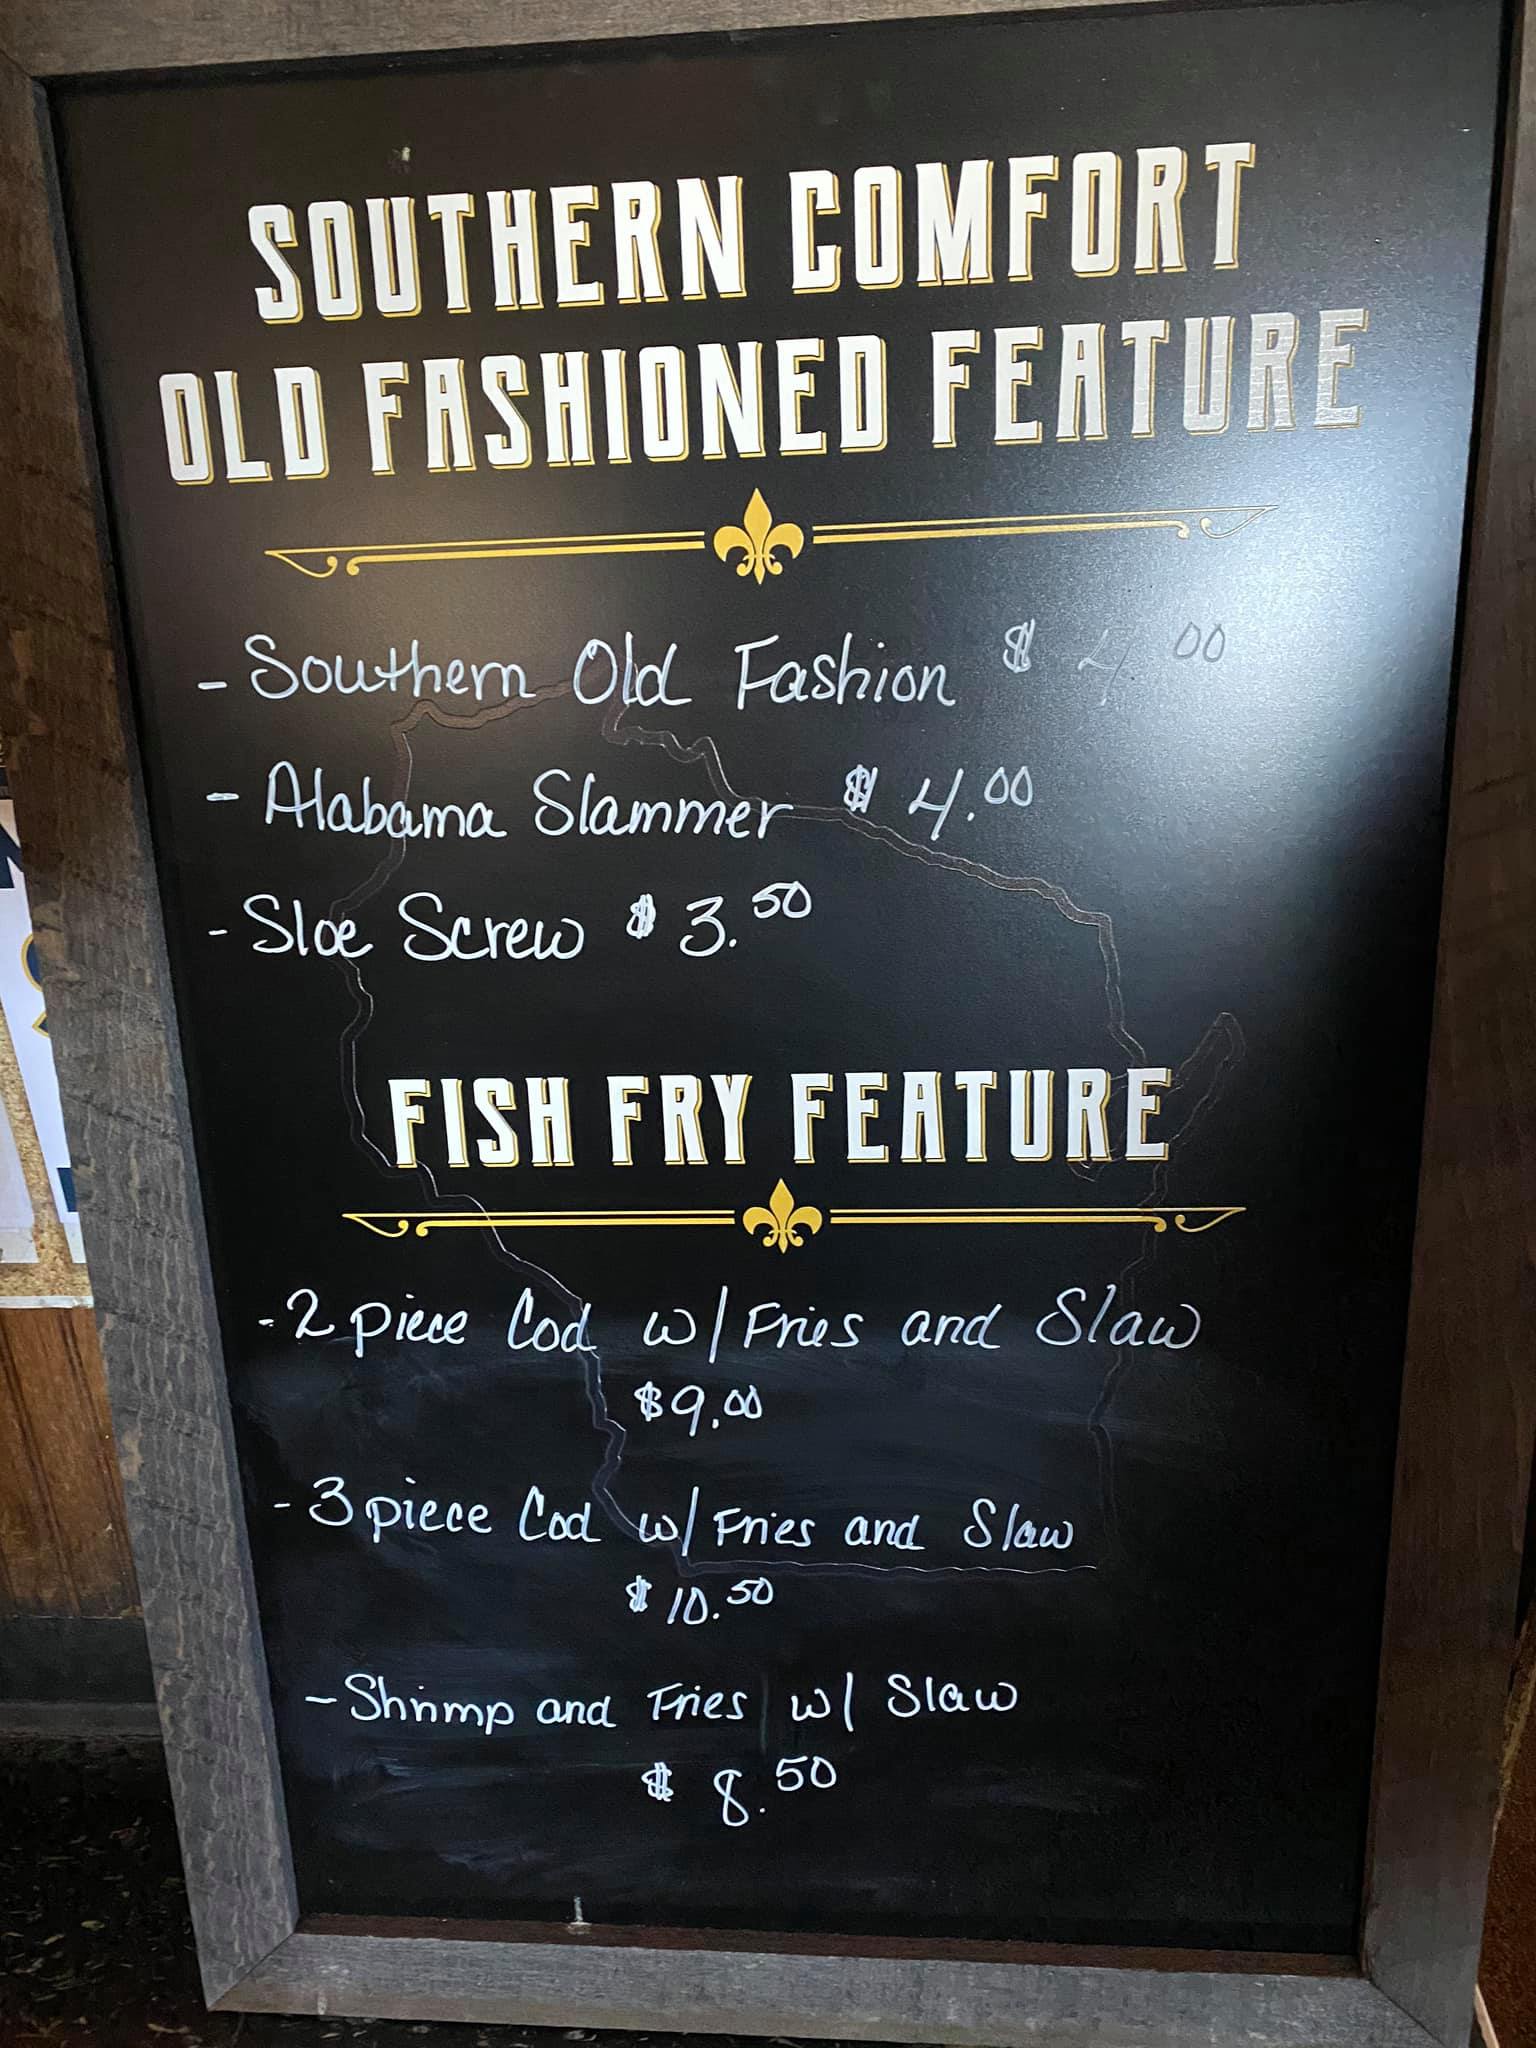 SOUTHERN COMFORT
OLD FASHIONED FEATURE
- Southern Old Fashion $ 4 00
- Alabama Slammer $ 4.00
- Sloe Screw $ 3.50
FISH FRY FEATURE
- 2 piece Cod w/ Fries and Slaw
$9.00
- 3 piece Cod w/ Fries and Slaw
$ 10.50
- Shrimp and Fries w/ Slaw
$ 8.50